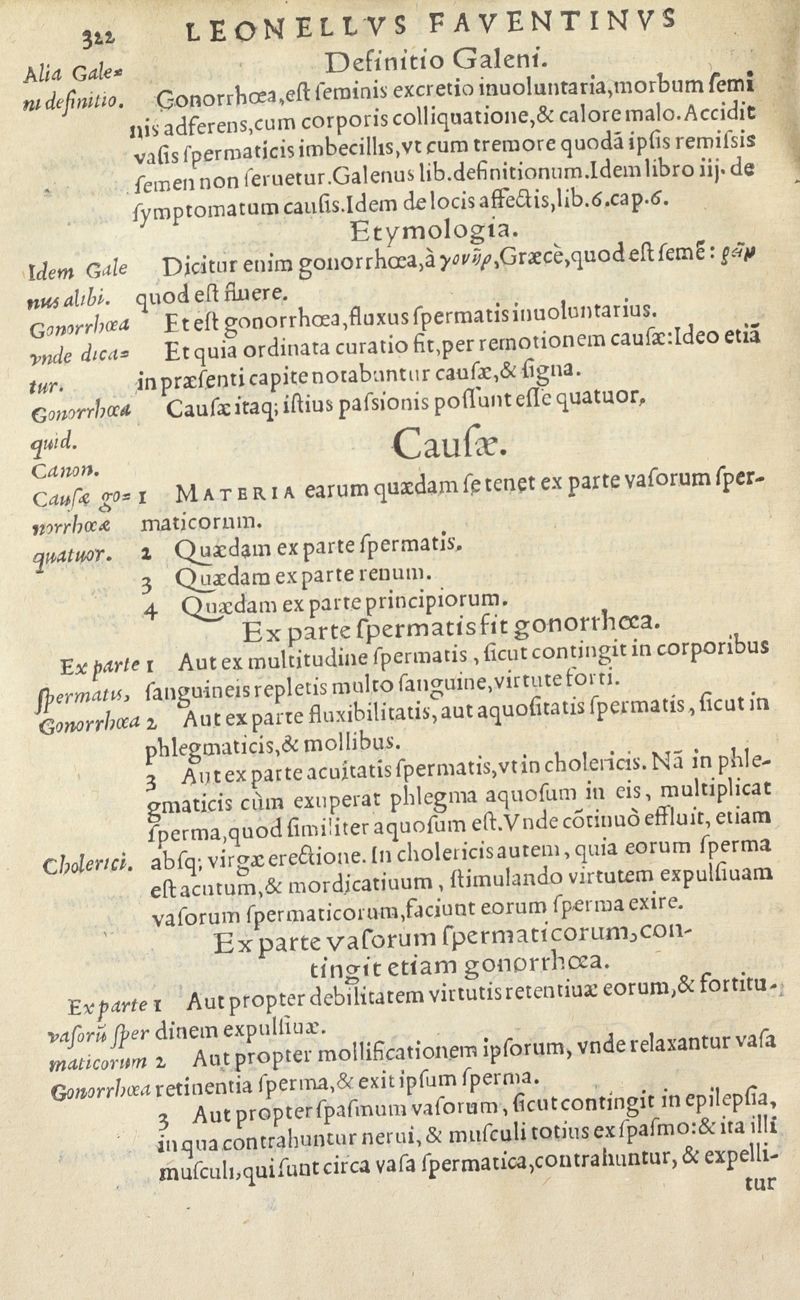 322 LEONELLVS FAVENTINVS
Definitio Galeni.
Alia Gale=
ni definitio.
Gonorrhœa, eſt ſeminis excretio inuoluntaria, morbum ſemi
nis adferens, cum corporis colliquatione, & calore malo. Accidit
vaſis ſpermaticis imbecillis, vt cum tremore quodā ipſis remiſsis
ſemen non ſeruetur. Galenus lib. definitionum. Idem libro iij. de
ſymptomatum cauſis. Idem de locis affectis, lib. 6. cap. 6.
Etymologia.
Idem Gale
nus alibi.
Dicitur enim gonorrhœa, à Græcè, quod eſt femē:
quod eſt fluere.
Gonorrhœa
vnde dica=
tur.
Et eſt gonorrhœa, fluxus ſpermatis inuoluntarius.
Et quia ordinata curatio fit, per remotionem cauſæ: Ideo etiā
in præſenti capite notabuntur cauſæ, & ſigna.
Gonorrhœa
quid.
Cauſæ itaq; iſtius paſsionis poſſunt eſſe quatuor,
Canon.
Cauſæ go=
norrhœæ
quatuor.
Cauſæ.
1 MATERIA earum quædam ſe tenet ex parte vaſorum ſper-
maticorum.
2 Quædam ex parte ſpermatis.
3 Quædam ex parte renum.
4 Quædam ex parte principiorum.
Ex parte ſpermatis fit gonorrhœa.
Ex parte
ſpermatis,
Gonorrhœa
1 Aut ex multitudine ſpermatis, ſicut contingit in corporibus
ſanguineis repletis multo ſanguine, virtute forti.
2 Aut ex parte fluxibilitatis, aut aquoſitatis ſpermatis, ſicut in
phlegmaticis, & mollibus.
3 Aut ex parte acuitatis ſpermatis, vt in cholericis. Nā in phle-
gmaticis cùm exuperat phlegma aquoſum in eis, multiplicat
ſperma, quod ſimiliter aquoſum eſt. Vnde cōtinuò effluit, etiam
Cholerici.
abſq; virgæ erectione. In cholericis autem, quia eorum ſperma
eſt acutum, & mordicatiuum, ſtimulando virtutem expulſiuam
vaſorum ſpermaticorum, faciunt eorum ſperma exire.
Ex parte vaſorum ſpermaticorum, con-
tingit etiam gonorrhœa.
Ex parte
vaſorū ſper
maticorum
Gonorrhœa
1 Aut propter debilitatem virtutis retentiuæ eorum, & fortitu-
dinem expulſiuæ.
2 Aut propter mollificationem ipſorum, vnde relaxantur vaſa
retinentia ſperma, & exit ipſum ſperma.
3 Aut propter ſpaſmum vaſorum, ſicut contingit in epilepſia,
in qua contrahuntur nerui, & muſculi totius ex ſpaſmo: & ita illi
muſculi, qui ſunt circa vaſa ſpermatica, contrahuntur, & expelli-
tur